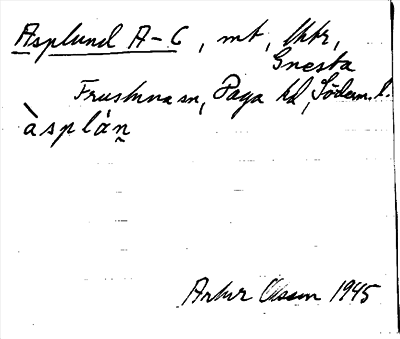 Asplund A-C, mt, lktr,
Gnesta
Frustuna sn, Daga hd, Söderm.l.
àsplán̰
Artur Olsson 1945